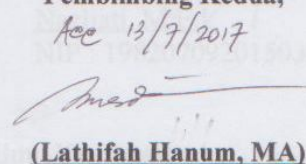 Pembimbing Kedua,
Acc 13/7/2017
(Lathifah Hanum, MA)